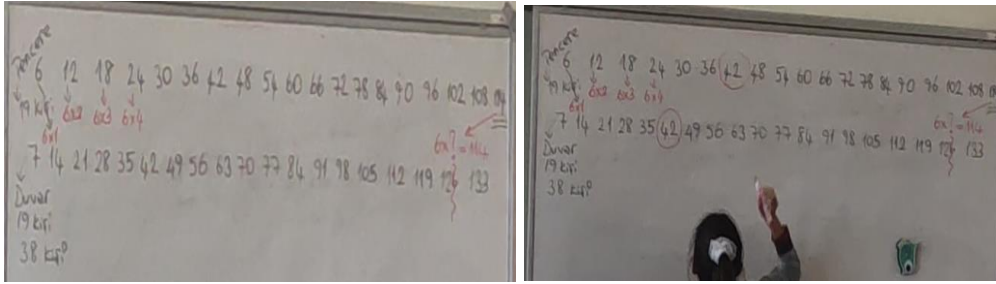 6 12 18 24 30 36 42 48 54 60 66 72 78 84 90 96 102 108 114
19 kişi 6x1 6x2 6x3 6x4
6x?=114
7 14 21 28 35 42 49 56 63 70 77 84 91 98 105 112 119 126 133
Duvar
19 kişi
38 kişi
6 12 18 24 30 36 42 48 54 60 66 72 78 84 90 96 102 108
19 kişi 6x1 6x2 6x3 6x4
6x?=114
7 14 21 28 35 42 49 56 63 70 77 84 91 98 105 112 119 126 133
Duvar
19 kişi
38 kişi